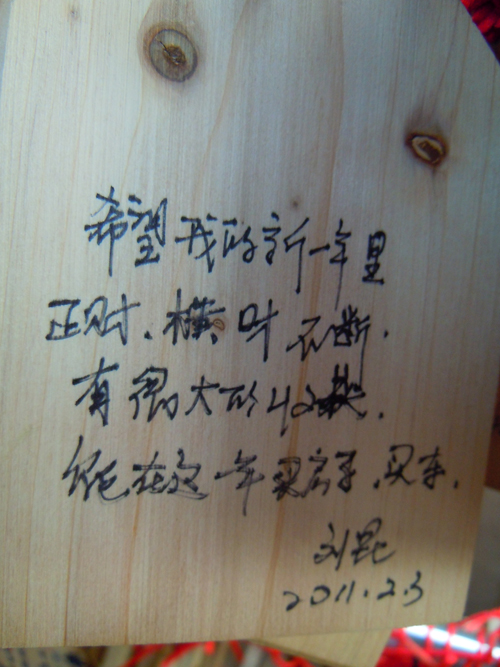 希望我的新年里
正财、横财不断.
有很大的收获.
能在这一年买房子.买车.
刘昆
2011.2.3